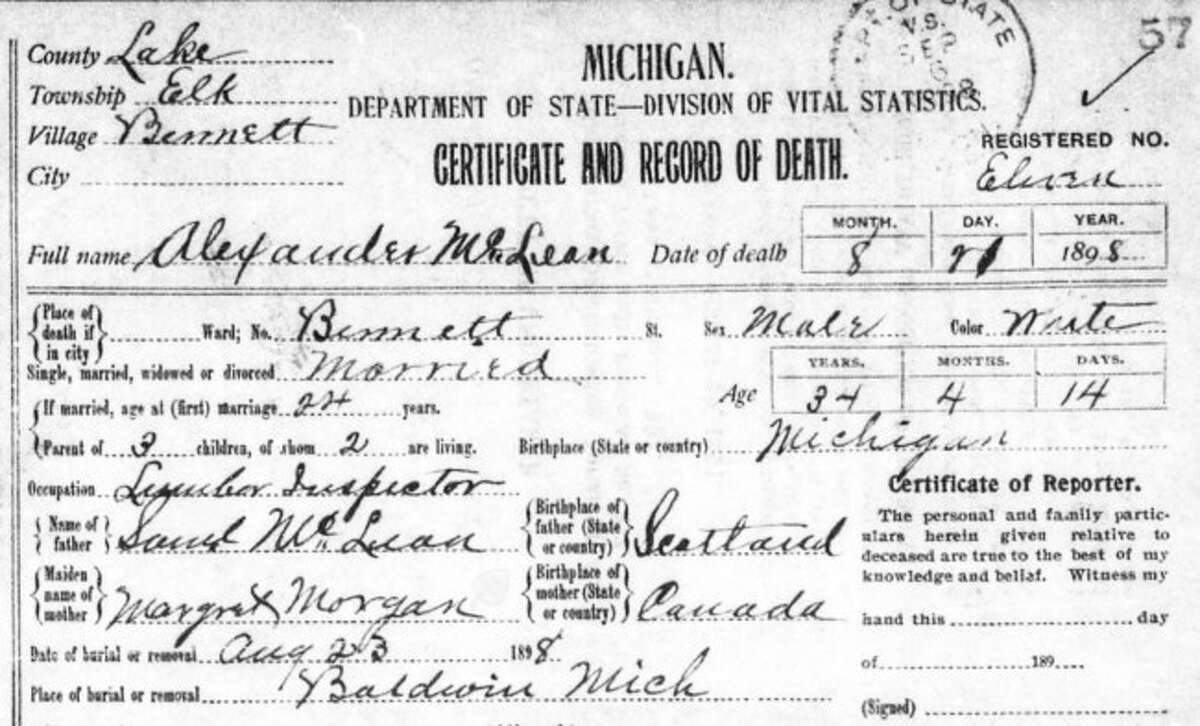 57
County Lake
Township Elk
Village Bennett
City
MICHIGAN.
DEPARTMENT OF STATE—DIVISION OF VITAL STATISTICS.
CERTIFICATE AND RECORD OF DEATH.
REGISTERED NO.
Eleven
Full name Alexander McLean Date of death
MONTH. DAY. YEAR.
8 21 1898
Place of death if in city Ward; No. Bennett St. Sex Male Color White
Single, married, widowed or divorced Married
Age YEARS. MONTHS. DAYS.
34 4 14
If married, age at (first) marriage 24 years.
Parent of 3 children, of shom 2 are living. Birthplace (State or country) Michigan
Occupation Lumber Inspector
Name of father Saml McLean Birthplace of father (State or country) Scotland
Maiden name of mother Margret Morgan Birthplace of mother (State or country) Canada
Date of burial or removal Aug 23 1898
Place of burial or removal Baldwin Mich
Certificate of Reporter.
The personal and family partic-
ulars herein given relative to
deceased are true to the best of my
knowledge and belief. Witness my
hand this day
of 189
(Signed)